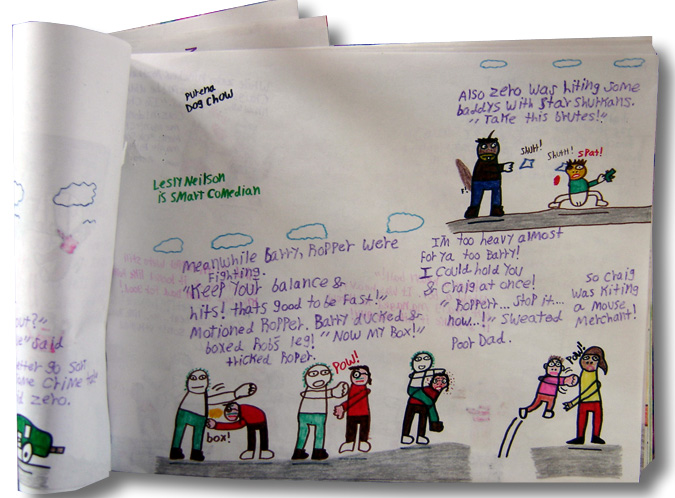 Purena
Dog Chow
Lesly Neilson
is Smart Comedian
Also zero was hiting some
baddys with Star Shurikans.
"Take this brutes!"
Shuh!
Shuhh!
Spat!
Meanwhile Barry, Ropper were
Fighting.
"Keep your balance &
hits! thats good to be fast!"
Motioned Ropper. Barry ducked &
boxed Rob's leg! "Now my Box!"
thicked Roper.
I'm too heavy almost
For ya too Barry!
I could hold you
& Craig at once!
"Roperr... stop it....
now..!" Sweated
Poor Dad.
So Craig
was Kiting
a Mouse
Merchant!
box!
POW!
POW!
said
zero.